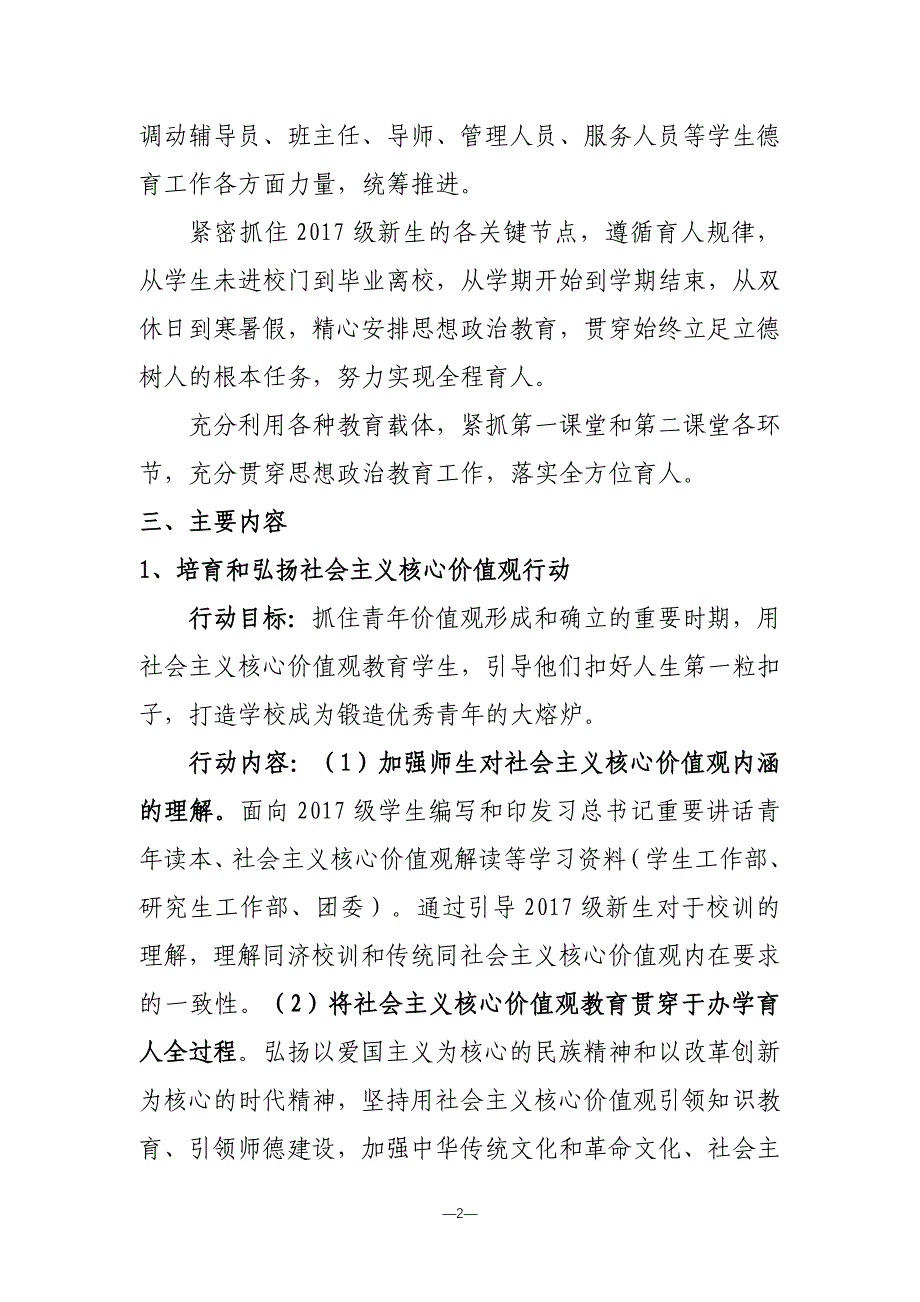 调动辅导员、班主任、导师、管理人员、服务人员等学生德
育工作各方面力量，统筹推进。
紧密抓住 2017 级新生的各关键节点，遵循育人规律，
从学生未进校门到毕业离校，从学期开始到学期结束，从双
休日到寒暑假，精心安排思想政治教育，贯穿始终立足立德
树人的根本任务，努力实现全程育人。
充分利用各种教育载体，紧抓第一课堂和第二课堂各环
节，充分贯穿思想政治教育工作，落实全方位育人。
三、主要内容
1、培育和弘扬社会主义核心价值观行动
行动目标：抓住青年价值观形成和确立的重要时期，用
社会主义核心价值观教育学生，引导他们扣好人生第一粒扣
子，打造学校成为锻造优秀青年的大熔炉。
行动内容：（1）加强师生对社会主义核心价值观内涵
的理解。面向 2017 级学生编写和印发习总书记重要讲话青
年读本、社会主义核心价值观解读等学习资料（学生工作部、
研究生工作部、团委）。通过引导 2017 级新生对于校训的
理解，理解同济校训和传统同社会主义核心价值观内在要求
的一致性。（2）将社会主义核心价值观教育贯穿于办学育
人全过程。弘扬以爱国主义为核心的民族精神和以改革创新
为核心的时代精神，坚持用社会主义核心价值观引领知识教
育、引领师德建设，加强中华传统文化和革命文化、社会主
—2—